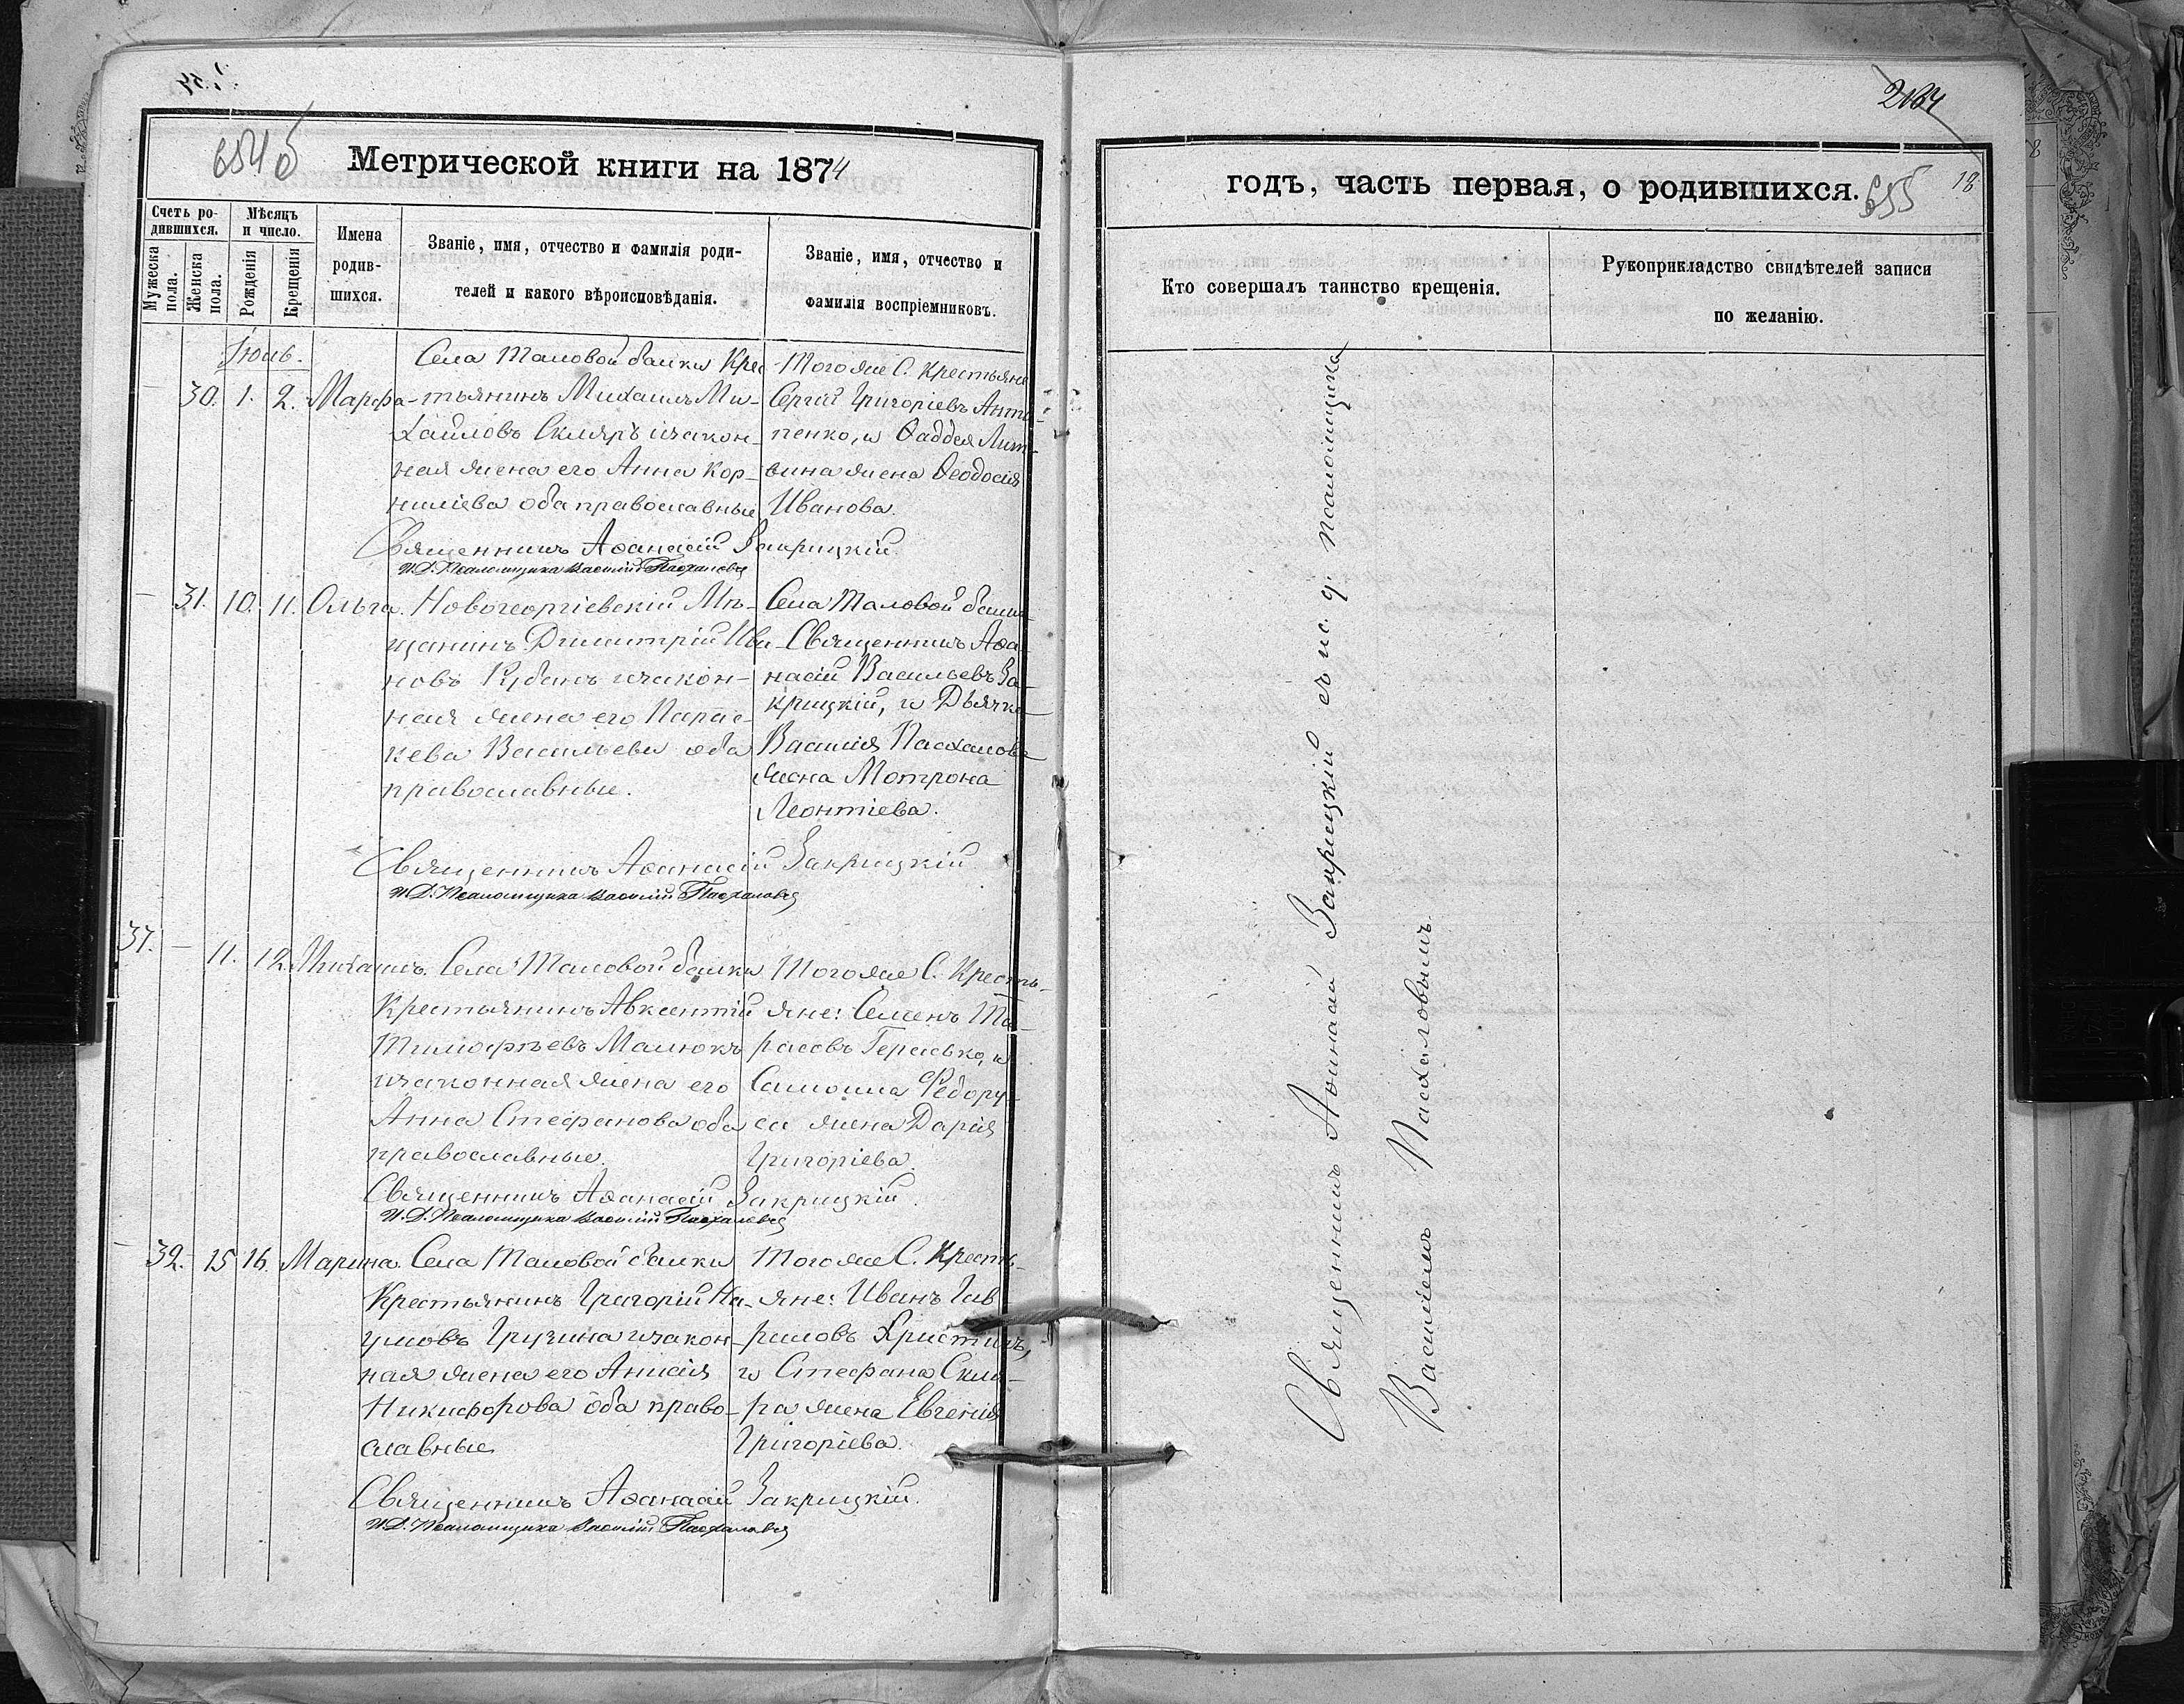 654 об
Метрической книги на 1874
Счетъ ро-
дившихся.
Мѣсяцъ
и число.
Мужеска
пола.
Женска
пола.
Рожденія
Крещенія
Имена
родив-
шихся.
Званіе, имя, отчество и фамилія роди-
телей и какого вѣроисповѣданія.
Званіе, имя, отчество и
фамилія воспріемниковъ.
Іюнь.
— 30. 1. 2. Марфа
Села Таловой балки Крес
тьянинъ Михаилъ Ми-
хайловъ Скляръ и закон-
ная жена его Анна Кор-
ниліева оба православные
Того же С. Крестьяне
Сергій Григоріевъ Анто-
пенко, и Ѳаддея Лит-
вина жена Ѳеодосія
Иванова.
Священникъ Аѳанасій Закрицкій
И. Д. Псаломщика Василій Пасхаловъ
— 31. 10. 11. Ольга.
Новогеоргіевскій Мѣ-
щанинъ Димитрій Ива-
новъ Кубанъ и закон-
ная жена его Парас-
кева Васильева оба
православные.
Села Таловой балки
Священникъ Аѳа-
насій Васильевъ За-
крицкій, и Дьячка
Василія Пасхалова
жена Мотрона
Леонтіева.
Священникъ Аѳанасій Закрицкій
И. Д. Псаломщика Василій Пасхаловъ
37. — 11. 12. Михаилъ.
Села Таловой балки
Крестьянинъ Авксентій
Тимофѣевъ Малюкъ
и законная жена его
Анна Стефанова оба
православные.
Того же С. Кресть-
яне: Семенъ Та-
расовъ Гераско, и
Самоила Федору-
са жена Дарія
Григоріева.
Священникъ Аѳанасій Закрицкій
И. Д. Псаломщика Василій Пасхаловъ
— 32. 15 16. Марина.
Села Таловой балки
Крестьянинъ Григорій На-
умовъ Грузина и закон-
ная жена его Анисія
Никифорова оба право-
славные
Того же С. Кресть-
яне: Иванъ Гав
риловъ Христичъ,
и Стефана Скля-
ра жена Евгенія
Григоріева.
Священникъ Аѳанасій Закрицкій.
И. Д. Псаломщика Василій Пасхаловъ
годъ, часть первая, о родившихся.
655
18
Кто совершалъ таинство крещенія.
Рукоприкладство свидѣтелей записи
по желанію.
Священникъ Аѳанасій Закрицкій съ ис. д. псаломщика
Василіемъ Пасхаловымъ